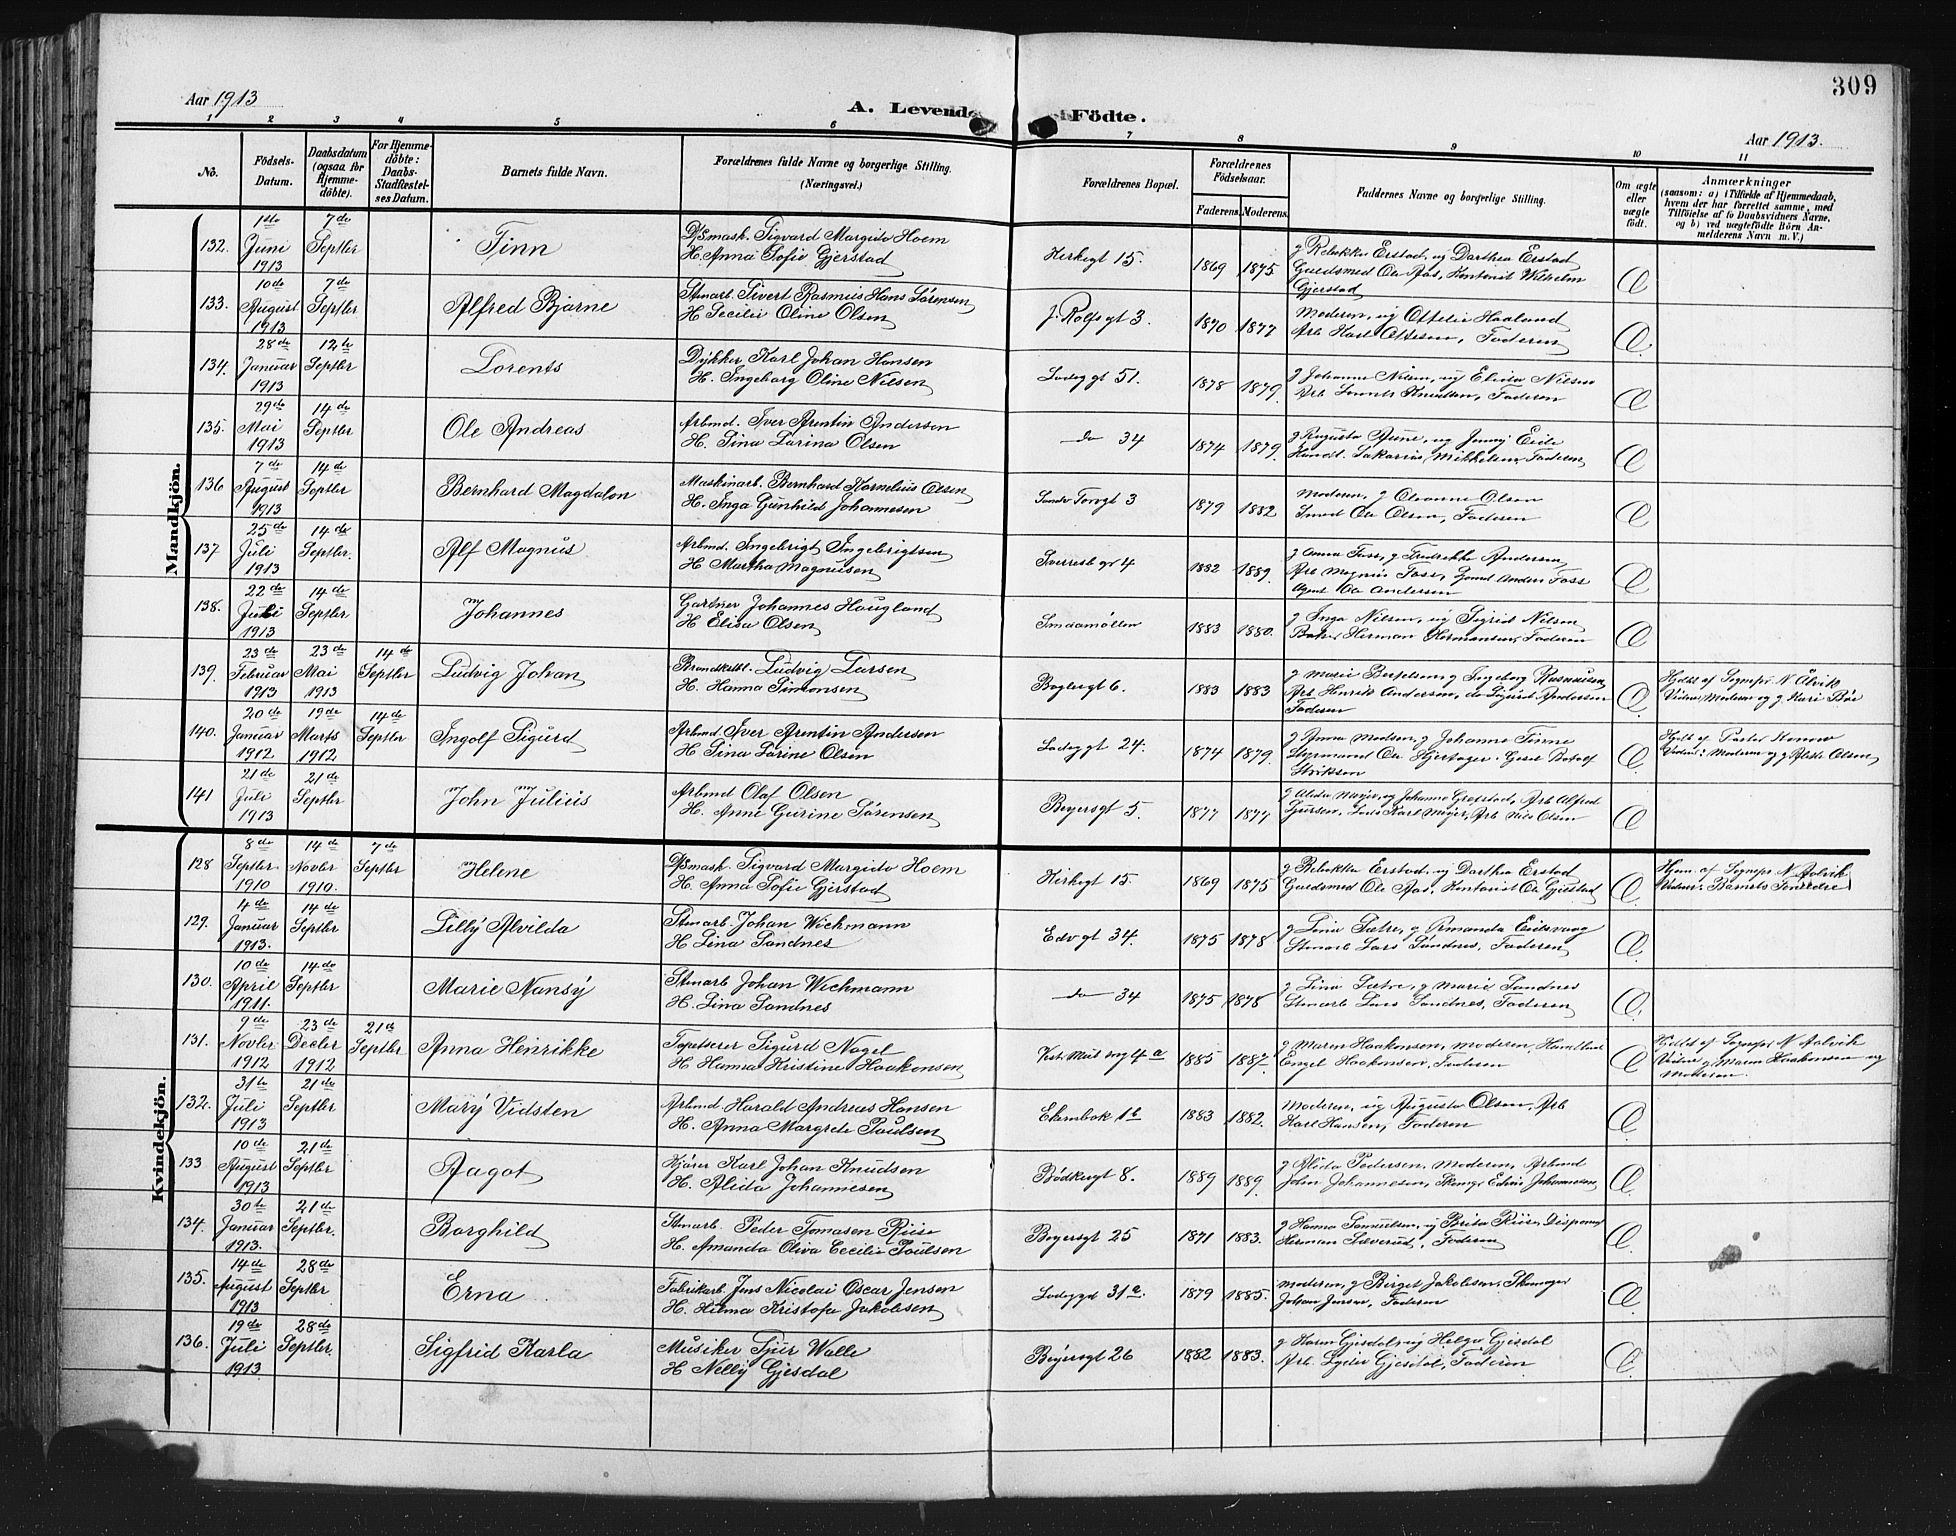 309
Aar 1913
A. Levende Födte.
Aar 1913.
1 2 3 4 5 6 7 8 9 10 11
No.
Födsels-Datum.
Daabsdatum (ogsaa for Hjemme-döbte).
For Hjemme-döbte: Daabs-Stadfæstel-ses Datum.
Barnets fulde Navn.
Forældrenes fulde Navne og borgerlige Stilling. (Næringsvei.)
Forældrenes Bopæl.
Forældrenes Födselsaar.
Faderens. Moderens.
Faddernes Navne og borgerlige Stilling.
Om ægte eller uægte födt.
Anmærkninger
(saasom: a) i Tilfælde af Hjemmedaab, hvem der har forrettet samme, med Tilföielse af to Daabsvidners Navne, og b) ved uægtefödte Börn An-melderens Navn m. V.)
Mandkjön.
132. 1ste Juni 1913 7de Septbr Finn Dpsmask. Sigvard Margido Hoem
H. Anna Sofie Gjerstad Kirkegt 15. 1869 1875 g Rebekka Erstad, ug Dorthea Erstad
Guldsmed Ole Aas, Kontorist Wilhelm
Gjerstad
133. 10de August 1913 7de Septbr Alfred Bjarne Stenarb. Sivert Rasmus Hans Sørensen
H. Cecilie Oline Olsen J. Rolfsgt 3. 1870 1877 Moderen, ug Ottelie Haaland
Arb Karl Ottesen, Faderen
134. 28de Januar 1913 12te Septbr Lorents Dykker Karl Johan Hansen
H. Ingeborg Oline Nilsen Ladegt 51. 1878 1879. g Johanne Nilsen, ug Elida Nilsen
Arb Knudsen, Faderen
135. 29de Mai 1913 14de Septbr Ole Andreas Arbmd. Iver Arentin Andersen
H. Sina Larina Olsen do 34 1874 1879. g Augusta Aune, ug Jenny Eide
Sakarias Mikkelsen Faderen
136 7de August 1913 14de Septbr Bernhard Magdalon Maskinarb. Bernhard Kornelius Olsen
H. Inga Gunhild Johannesen Sandv Torvgt 3 1879 1882 Moderen, g Oleanne Olsen
Smed Ole Olsen, Faderen
137 25de Juli 1913 14de Septbr. Alf Magnus Arbmd. Ingebrigt Ingebrigtsen
H Martha Magnusen Sverresb gt 4 1882 1889. g Anna Foss, g Fredrikke Andersen
Arb Magnus Foss, Anders Foss
Agent Ole Andersen
138. 22de Juli 1913 14de Septbr Johannes Gartner Johannes Haugland
H Elisa Olsen 1883 1880. g Inga Nilsen, ug Sigrid Nilsen
Baker Herman Hermansen, Faderen
139. 23de Februar 1913 23de Mai 1913 14de Septbr Ludvig Johan Brandkstbl. Ludvig Larsen
H. Hanna Simonsen Boglergt 6. 1883 1883 g Marie g Ingeborg Rasmussen
Arb Henrik Andersen, do Sigurd Andersen
Faderen Hjdbt af Sognepr N. Ålvik
Vidne, Moderen og g Kari Bøe
140. 20de Januar 1912 19de Marts 1912 14de Septbr Ingolf Sigurd Arbmd. Iver Arentin Andersen
H Sina Larine Olsen Ladegt 24. 1874 1879. g Anna Madsen, g Johanne Finne
Styrmand Ole Hjertager.
Hjdbt af Pastor Konow
Vidne: Moderen og g Olsen
141 21de Juli 1913 21de Septbr John Julius Arbmd Olaf Olsen
H. Anne Gurine Sørensen Beyersgt 5. 1877 1877 g Alida Meyer, ug Johanne Grefstad, Arb Alfred
Karl Meyer, Arb Nils Olsen
Kvindekjön.
128 8de Septbr 1910 14de Novbr 1910. 7de Septbr Helene Dpsmask. Sigvard Margido Hoem
H. Anna Sofie Gjerstad Kirkegt 15. 1869 1875 g Rebekka Erstad, ug Dorthea Erstad
Guldsmed Ole Aas, Kontorist Ole Gjerstad Hjem. af Sognepr N. Aalvik
Vidner: Barnets Forældre
129. 4de Januar 1913. 14de Septbr Lilly Alvilda Stenarb. Johan Wichmann
H. Lina Sandnes Edvgt 34. 1875 1878 g Lina Sætre, g Amanda Eidsvaag
Stenarb Lars Sandnes, Faderen
130. 10de April 1911. 14de Septbr Marie Nansy Stenarb Johan Wichmann
H. Lina Sandnes do 34 1875 1878 g Lina Sætre, g Marie Sandnes
Stenarb Lars Sandnes, Faderen
131. 9de Novbr 1912 23de Decbr 1912 21de Septbr Anna Henrikke Tapetserer Sigurd Nagel
H. Hanna Kristine Haakonsen 1885 1887. g Maren Haakonsen, Moderen,
Engel Haakonsen, Faderen Hjdbt af Sognepr N. Aalvik
Vidne g Maren Haakonsen og
Moderen.
132. 31te Juli 1913 21de Septbr Mary Vidsten Arbmd Harald Andreas Hansen
H. Anna Margrete Poulsen 1b 1883 1882. Moderen, ug Augusta Olsen, Arb
Karl Hansen, Faderen
133 10de August 1913 21de Septbr Aagot Kjører Karl Johan Knudsen
H. Alida Johannesen Bødkergt 8. 1889 1889. g Alida Pedersen, Moderen, Arbmd
John Johannesen, Edvin Johannesen
134. 30te Januar 1913. 21de Septbr. Borghild Stenarb. Peder Tomasen Riise
H. Amanda Oliva Cecilie Poulsen Beyersgt 25 1871 1883. g Hanna Samuelsen, ug Brita Riise,
Herman Sæverud, Faderen
135. 14de August 1913 28de Septbr Erna Fabrikarb. Jens Nicolai Oscar Jensen
H. Hilma Kristofa Jakobsen 31a 1879 1885. Moderen, g Birget Jakobsen, Skomager
Johan Jensen, Faderen
136. 19de Juli 1913 28de Septbr. Sigfrid Karla Musiker Sjur Walle
H Nelly Gjesdal Beyersgt 26 1882 1883. g Karen Gjesdal, ug Helga Gjesdal
Arb. Lyder Gjesdal, Faderen